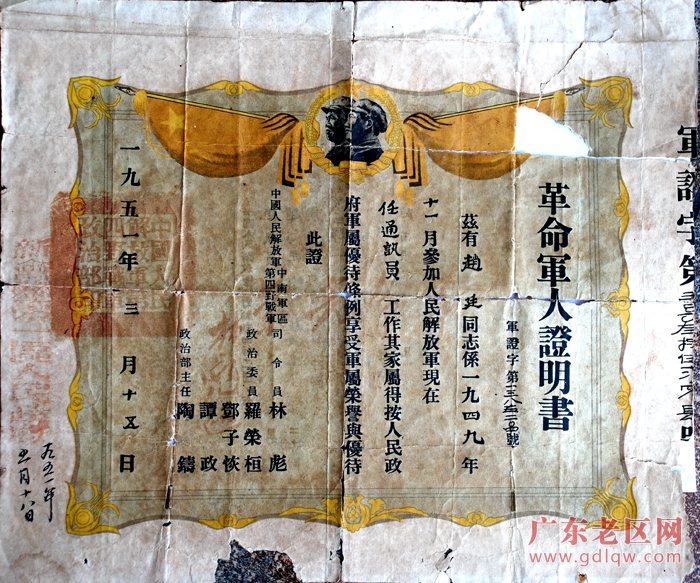 革命軍人證明書
軍證字第 號
茲有趙 廷 同志係一九四九年
十一月參加人民解放軍現在
任通訊員 工作其家屬得按人民政
府軍屬優待條例享受軍屬榮譽與優待
此證
中國人民解放軍中南軍區第四野戰軍
司令員 林彪
政治委員 羅榮桓
鄧子恢
譚政
政治部主任 陶鑄
一九五一年 三 月 十五 日
軍證字第
一九五一年
月十八日
广东老区网
www.gdlqw.com